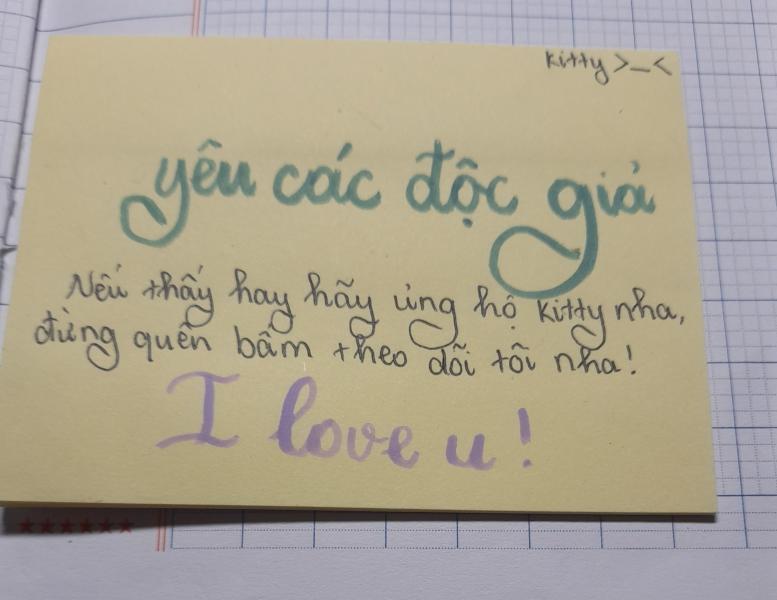 Kitty >_<
yêu các độc giả
Nếu thấy hay hãy ủng hộ Kitty nha,
đừng quên bấm theo dõi tôi nha!
I love u!